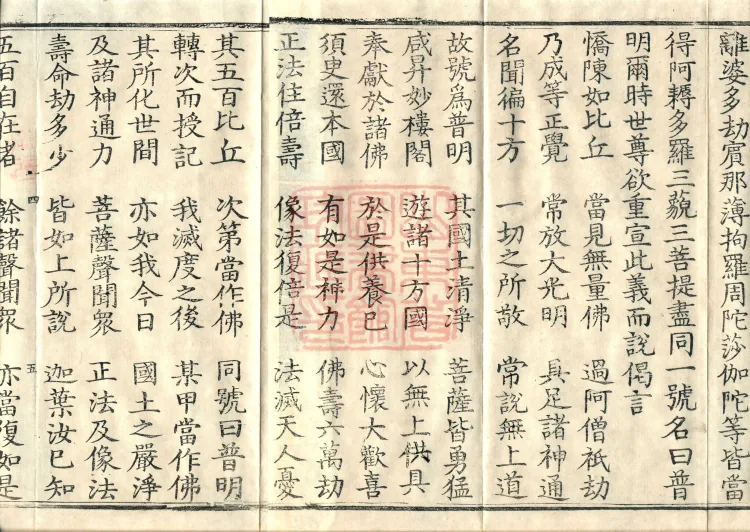 離婆多劫賓那薄拘羅周陀莎伽陀等皆當
得阿耨多羅三藐三菩提盡同一號名曰普
明爾時世尊欲重宣此義而說偈言
憍陳如比丘　當見無量佛　過阿僧祇劫
乃成等正覺　常放大光明　具足諸神通
名聞徧十方　一切之所敬　常說無上道
故號爲普明　其國土清淨　菩薩皆勇猛
咸昇妙樓閣　遊諸十方國　以無上供具
奉獻於諸佛　於是供養已　心懷大歡喜
須臾還本國　有如是神力　佛壽六萬劫
正法住倍壽　像法復倍是　法滅天人憂
其五百比丘　次第當作佛　同號曰普明
轉次而授記　我滅度之後　某甲當作佛
其所化世間　亦如我今日　國土之嚴淨
及諸神通力　菩薩聲聞眾　正法及像法
壽命劫多少　皆如上所說　迦葉汝已知
四　五
五百自在者　餘諸聲聞眾　亦當復如是